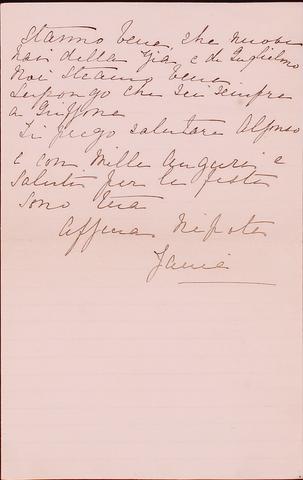 Stanno bene, che nuove
hai della Zia e di Guglielmo
Noi stiamo bene.
Suppongo che sei sempre
a Griffone
Ti prego salutare Alfonso
e con mille auguri e
saluti per le feste
sono tua
Affma Nipote
Janie